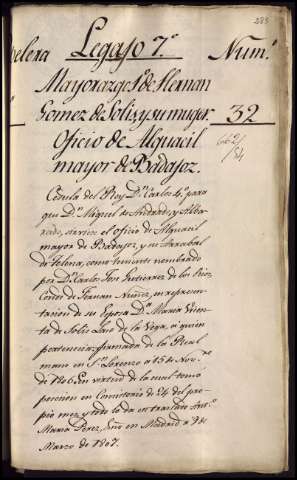 283
Legajo 7.º Num.
Mayorazgo 1.º de Hernan
Gomez de Solis, y su muger. 32
Oficio de Alguacil 662/54
mayor de Badajoz.
Cedula del Rey D.n Carlos 4.º para
que D.n Miguel de Andrade, y Alba-
rado, sirviese el oficio de Alguacil
mayor de Badajoz, y su Arrabal
de Telena, como teniente nombrado
por D.n Carlos Jose Gutierrez de los Rios,
Conde de Fernan Nuñez, en represen-
tacion de su Esposa D.a Maria Vicen-
ta de Solis Laso de la Vega, á quien
pertenecia; firmada de la Real
mano en S.n Lorenzo a 15 de Nov.re
de 1806. En virtud de la cual tomó
posesion en Consistorio de 24 del pro-
pio mes, y todo lo da en traslado Ant.º
Maria Perez, Esno en Madrid a 9 de
Marzo de 1807.